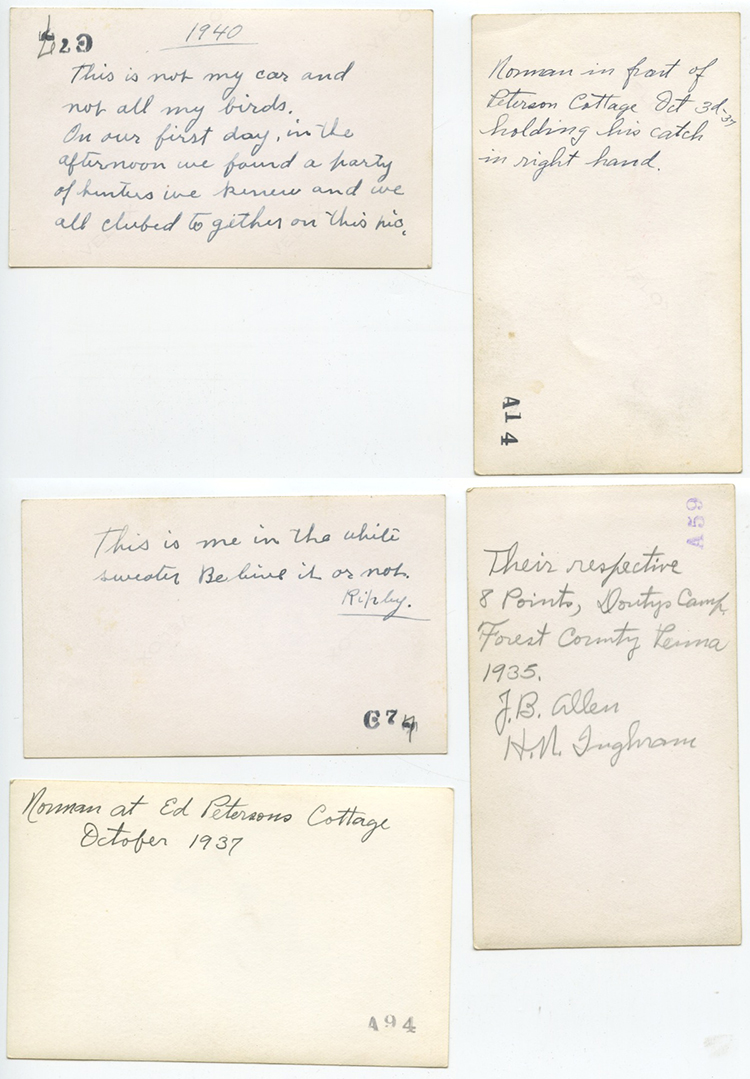 1940
This is not my car and
not all my birds.
On our first day, in the
afternoon we found a party
of hunters we kenew and we
all clubed to gether on this pic.
Norman in front of
Peterson Cottage Oct 3d-37
holding his catch
in right hand.
A14
This is me in the white
sweater Belive it or not.
Riply.
C74
A59
Their respective
8 Points, Doutys Camp.
Forest County Penna
1935.
J.B. Allen
H.N. Inghram
Norman at Ed Petersons Cottage
October 1937
A94